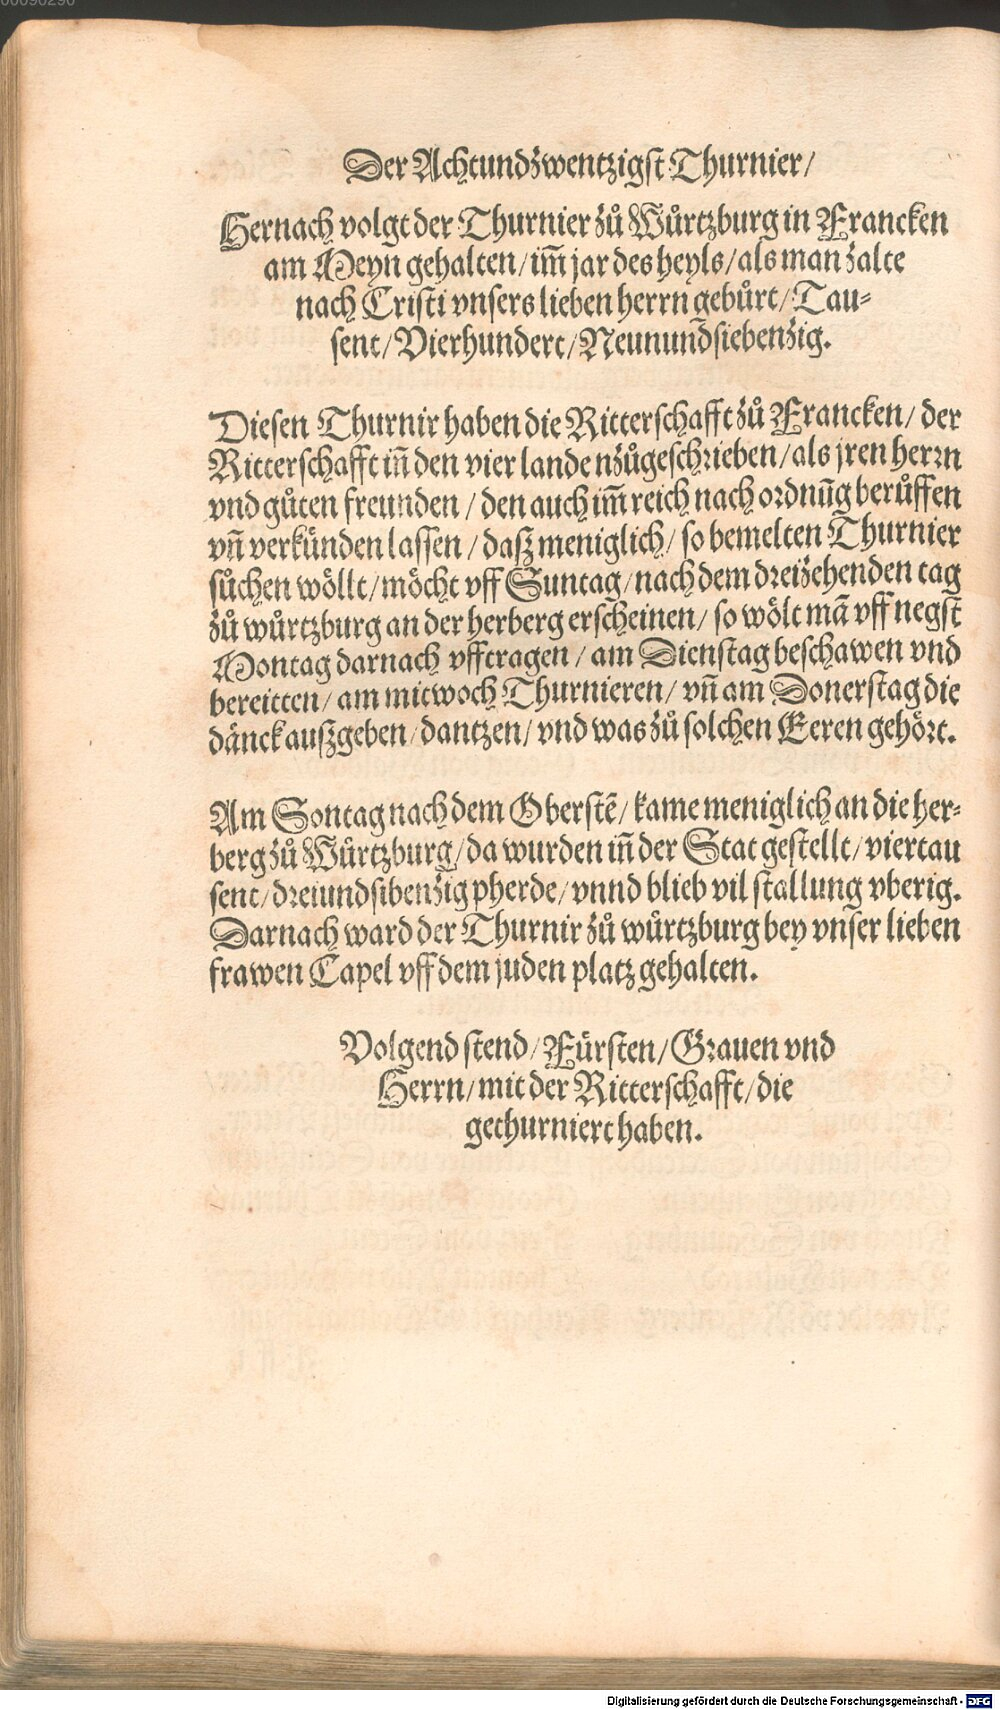 00090290
Der Achtundzwentzigst Thurnier/
Hernach volgt der Thurnier zů Würtzburg in Francken
am Meyn gehalten/ im̃ jar des heyls/ als man zalte
nach Cristi vnsers lieben herrn gebůrt/ Tau-
sent/ Vierhundert/ Neunund̃siebenzig.
Diesen Thurnir haben die Ritterschafft zů Francken/ der
Ritterschafft iñ den vier lande nzůgeschrieben/ als jren herrn
vnd gůten freunden/ den auch im̃ reich nach ordnũg berůffen
vñ verkünden lassen/ dasz meniglich/ so bemelten Thurnier
sůchen wöllt/ möcht vff Suntag/ nach dem dreizehenden tag
zů würtzburg an der herberg erscheinen/ so wölt mã vff negst
Montag darnach vfftragen/ am Dienstag beschawen vnd
bereitten/ am mitwoch Thurnieren/ vñ am Donerstag die
dänck auszgeben/ dantzen/ vnd was zů solchen Eeren gehört.
Am Sontag nach dem Oberstẽ/ kame meniglich an die her-
berg zů Würtzburg/ da wurden iñ der Stat gestellt/ viertau
sent/ dreiundsibenzig pherde/ vnnd blieb vil stallung vberig.
Darnach ward der Thurnir zů würtzburg bey vnser lieben
frawen Capel vff dem juden platz gehalten.
Volgend stend/ Fürsten/ Grauen vnd
Herrn/ mit der Ritterschafft/ die
gethurniert haben.
Digitalisierung gefördert durch die Deutsche Forschungsgemeinschaft - DFG